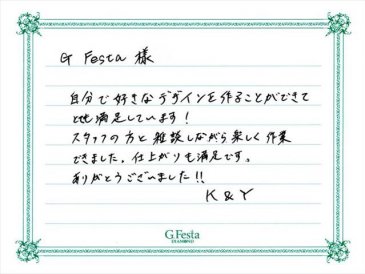 G Festa 様
自分で好きなデザインを作ることができて
とても満足しています!
スタッフの方と雑談しながら楽しく作業
できました。仕上がりも満足です。
ありがとうございました!!
K & Y
G.Festa
DIAMOND